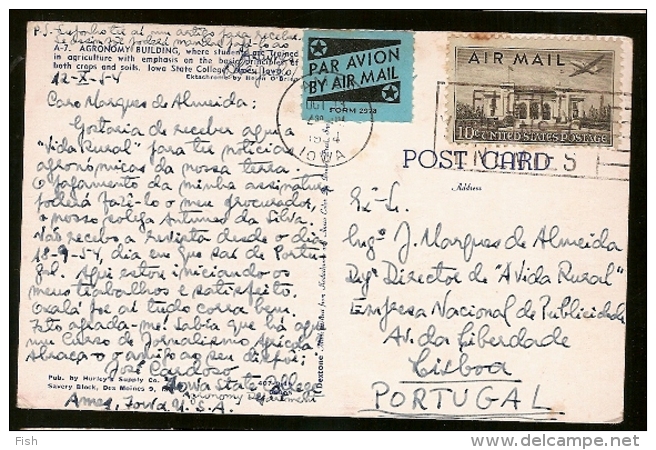 A-7. AGRONOMY BUILDING, where students are trained
in agriculture with emphasis on the basic principles of
both crops and soils. Iowa State College, Ames, Iowa
Ektachrome by
12-X-54
Caro Marques de Almeida:
Gostaria de receber aqui a
"Vida Rural" para ter notícias
agronómicas da nossa terra.
O pagamento da minha assinatura
poderá fazê-lo o meu procurador,
o nosso colega Antunes da Silva.
Não recebo a Revista desde o dia
18-9-54, dia em que saí de Portu-
gal. Aqui estou iniciando os
meus trabalhos e satisfeito.
Oxalá por aí tudo corra bem.
Isto agrada-me! Sabia que há aqui
um Curso de Jornalismo Agrícola
Abraça-o o amigo ao seu dispor:
José Cardoso
Iowa State College
Agronomy Department
Ames, Iowa U.S.A.
Pub. by Hurley's Supply Co.
Savery Block, Des Moines 9,
PAR AVION
BY AIR MAIL
FORM 2978
OCT 13
IOWA
AIR MAIL
10¢ UNITED STATES POSTAGE
POST CARD
Address
Exº
Engº J. Marques de Almeida
Digº Director de "A Vida Rural"
Empresa Nacional de Publicidade
Av. da Liberdade
Lisboa
PORTUGAL
Fish
www.delcampe.net